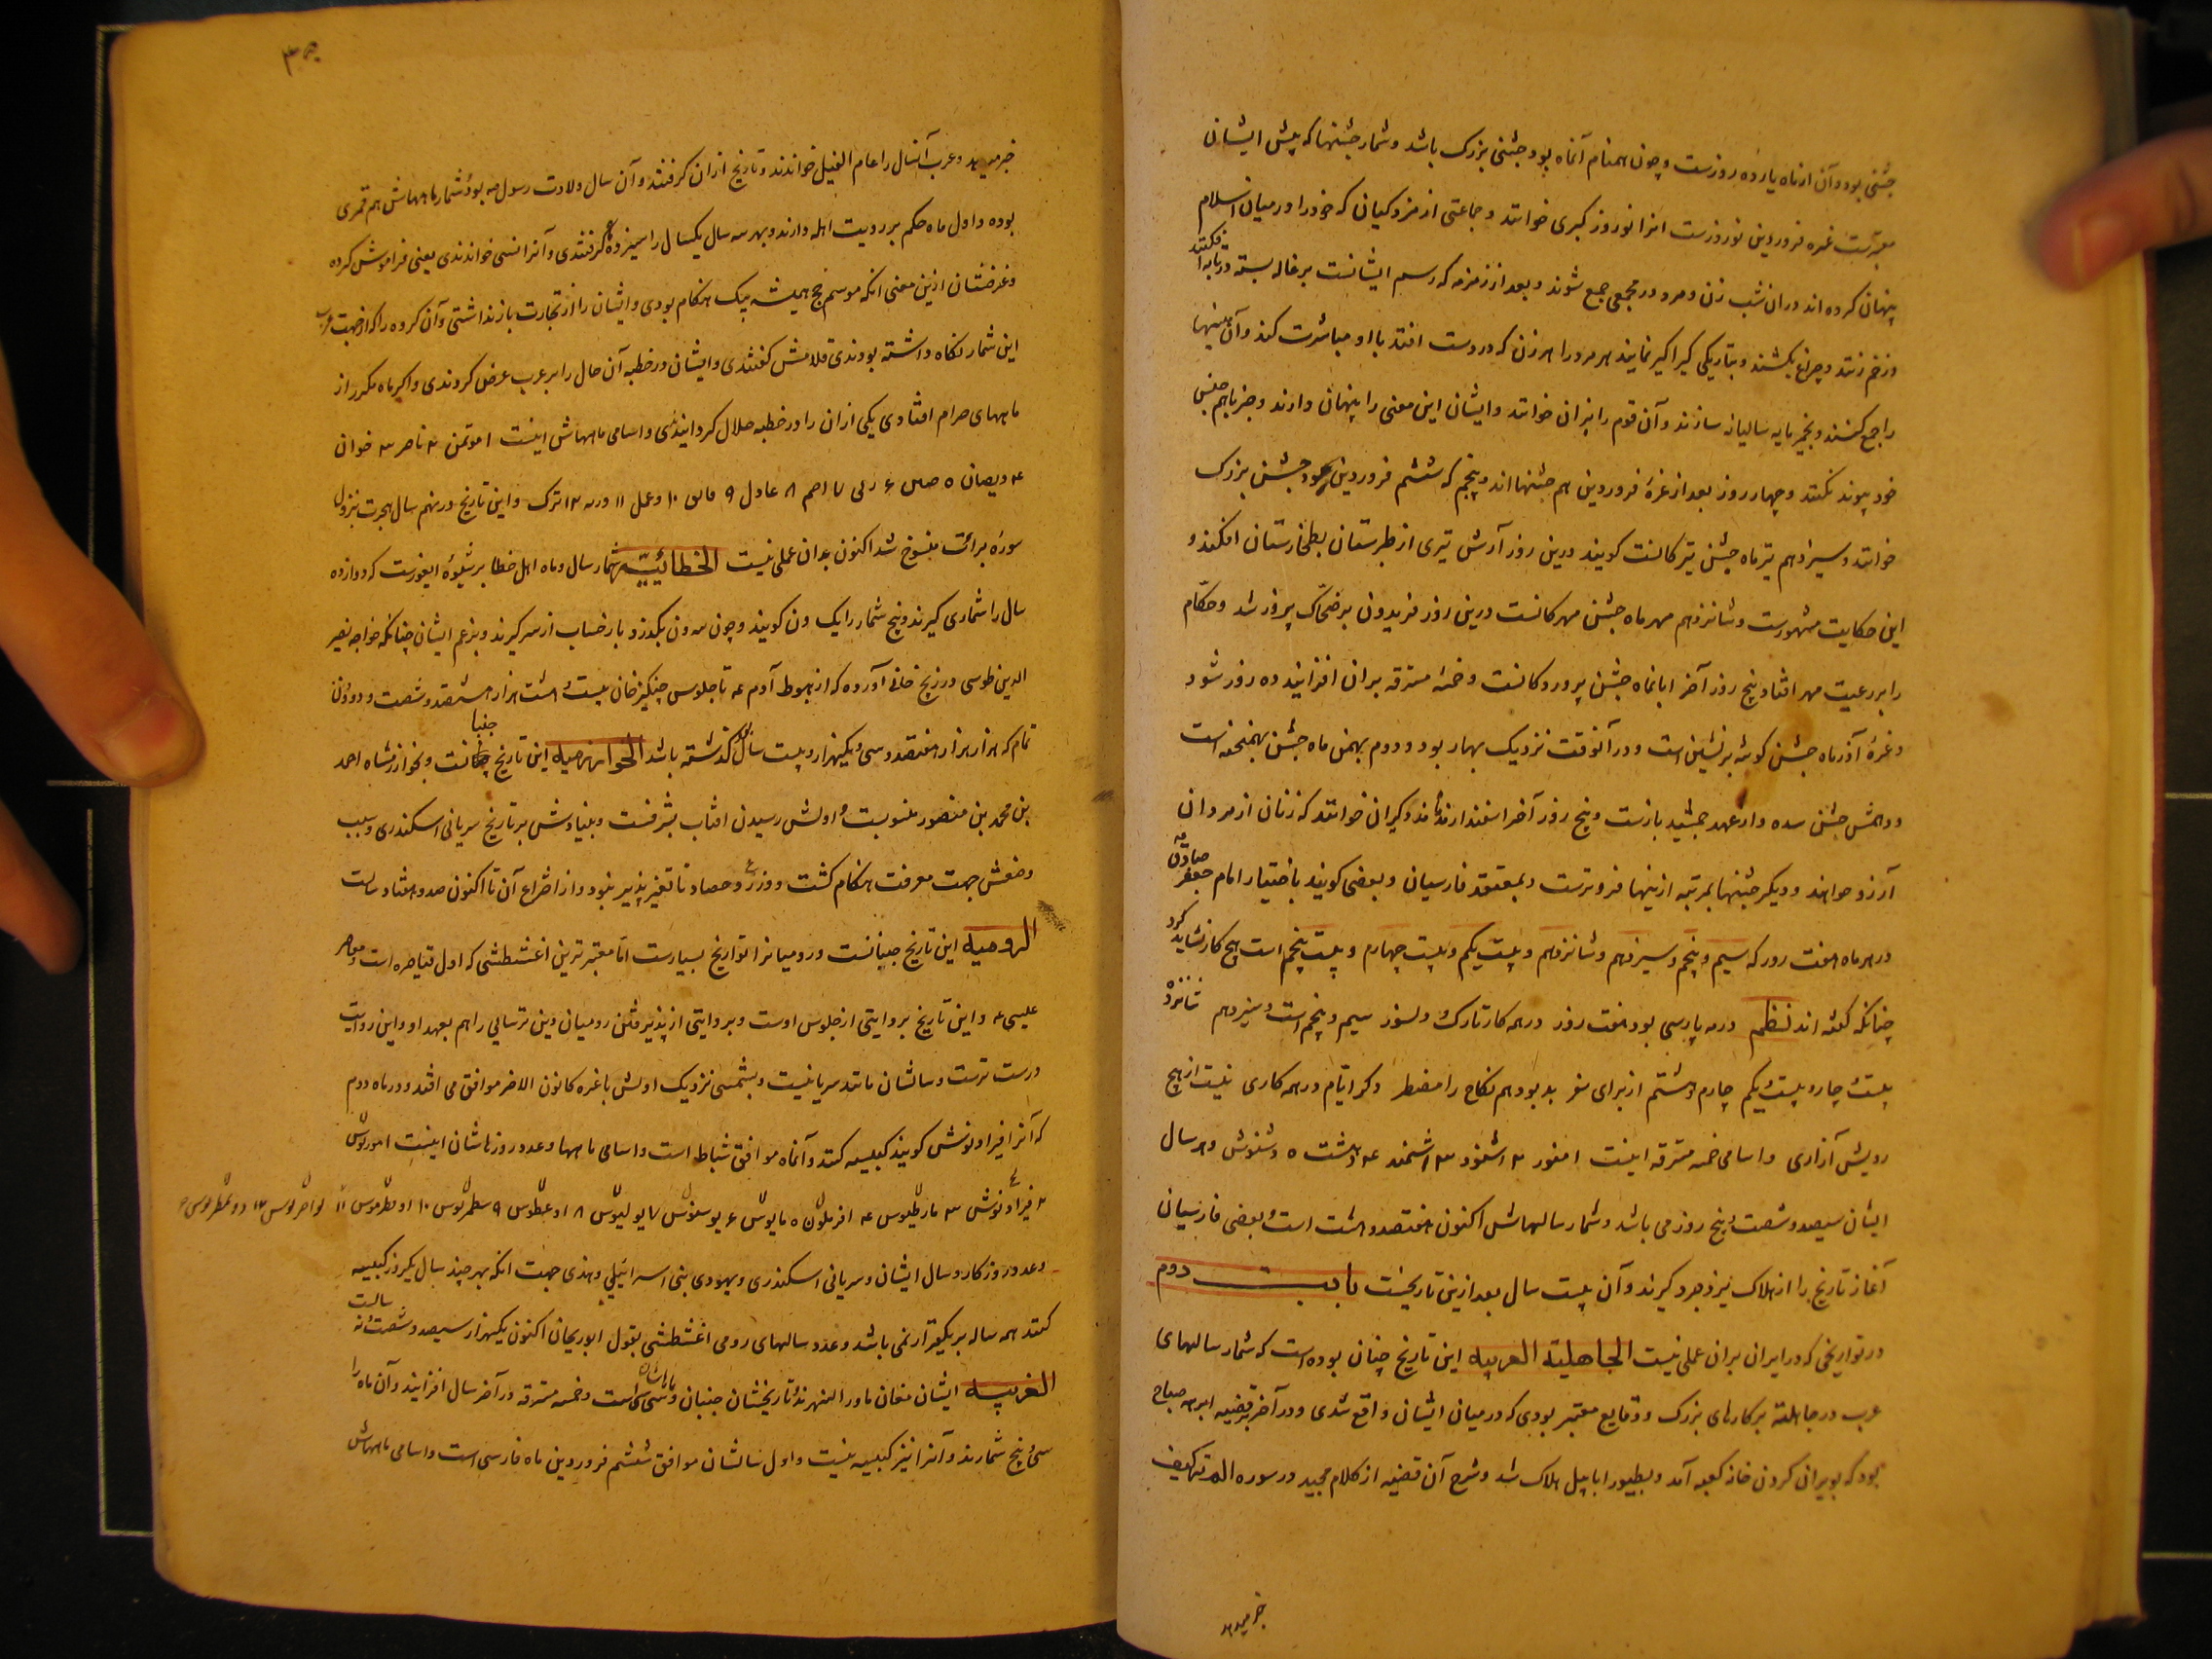 جشنی بود و آن ازماه یازده روزست و چون همنام آنماه بود جشنی بزرک باشد و شمار جشنها که پیش ایشان
معتبرست غره فروردین نوروزست انرا نوروز کبری خوانند و جماعتی از مزدکیان که خود را درمیان اسلام
پنهان کرده اند دران شب زن و مرد در مجمعی جمع شوند و بعد از زمزمه که رسم ایشانست بزغاله بسته
و زخم زنند و چراغ بکشند و بتاریکی کیراکیر نمایند هر مرد را هر زن که در دست افتد با او مباشرت کند و آن
را جمع کنند و بخمیر مایه سالیانه سازند و آن قوم را خوانند و ایشان این معنی را پنهان دارند و جز با هم جنس
خود پیوند نکنند و چهار روز بعد از غرهٔ فروردین هم جشنها اند و پنجم که ششم فروردین بود جشن بزرک
خوانند و سیزدهم تیرماه جشن تیرکانست کویند درین روز آرش تیری از طبرستان بطخارستان افکند و
این حکایت مشهورست و شانزدهم مهرماه جشن مهرکانست درین روز فریدون بر ضحاک پیروز شد و حکام
را بر رعیت مهر افتاد و پنج روز آخر ابانماه جشن پروردکانست و خمسهٔ مسترقه بران افزایند ده روز شود
و غرهٔ آذرماه جشن کوسه برنشین است و در آنوقت نزدیک بهار بود و دوم بهمن ماه جشن بهمنجنه است
و دهمش جشن سده و از عهد جمشید بازست و پنج روز آخر اسفندارمذ مذدکیران خوانند که زنان از مردان
آرزو خواهند و دیکر جشنها بمرتبه ازینها فروترست و بمعتقد فارسیان و بعضی کویند باختیار امام جعفر صادق
در هر ماه هفت روز که سیم و پنجم و سیزدهم و شانزدهم و بیست یکم و بیست چهارم و بیست پنجم است هیچ کار نشاید کرد
چنانکه کفته اند نظم در مه پارسی بود هفت روز در همه کار تارک و لسوز سیم و پنجم است و سیزدهم شانزده
بیست چار و بیست یکم چارم و هشتم از برای سفر بد بود هم نکاح را مضطر دکر ایّام در همه کاری نیست از هیچ
رویش آزاری و اسامی خمسه مسترقه اینست اهنود ۲ اشنود ۳ اشمند ۴ دهشت ۵ وشنوش و هر سال
ایشان سیصد و شصت و پنج روز می باشد و شمار سالهاش اکنون هفتصد و هشت است و بعضی فارسیان
آغاز تاریخ را از هلاک یزدجرد کیرند و آن بیست سال بعد ازین تاریخست باب دوم
در تواریخی که در ایران بران عملی نیست الجاهلیة العربیه این تاریخ چنان بوده است که شمار سالهای
عرب در جاهلیة بر کارهای بزرک و وقایع معتبر بودی که در میان ایشان واقع شدی و در آخر بر قضیه ابرهه صباح
بود که بویرانی کردن خانه کعبه آمد و بطیور ابابیل هلاک شد و شرح آن قضیه از کلام مجید در سوره الم تر کیف
خبر میدهد
خبر میدهد و عرب آنسال را عام الفیل خواندند و تاریخ ازان کرفتند و آن سال ولادت رسول بود شمار ماههاش هم قمری
بوده و اول ماه حکم بر رویت اهله دارند و بهر سه سال یکسال را سیزده کرفتندی و آنرا نسی خواندندی یعنی فراموش کرده
و غرضشان ازین معنی انکه موسم حج همیشه بیک هنکام بودی و ایشان را از تجارت باز نداشتی و آن کروه را که از جهت عرب
این شمار نکاه داشته بودندی قلامش کفتندی و ایشان در خطبه آن حال را بر عرب عرض کردندی و اکر ماه مکرر از
ماههای حرام افتادی یکی ازان را در خطبه حلال کردانیدی و اسامی ماههاش اینست ۱ موتمن ۲ ناجر ۳ خوان
۴ وبصان ۵ ۶ ربی ۷ اصم ۸ عادل ۹ ۱۰ وعل ۱۱ ورنه ۱۲ برک و این تاریخ در نهم سال هجرت بنزول
سورهٔ برائت منسوخ شد اکنون بدان عملی نیست الخطائیّه شمار سال و ماه اهل خطا بر شیوهٔ ایغورست که دوازده
سال را شماری کیرند و پنج شمار را یک ون کویند و چون سه ون بکذرد باز حساب از سر کیرند و بزعم ایشان چنانکه خواجه نصیر
الدین طوسی در زیج خانی آورده که از هبوط آدم تا جلوس چنکیز خان بیست و هشت هزار هشتصد و شصت و دو ون
تمام که هزار هزار هفتصد و سی و یکهزار و بیست سال بود کذشته باشد الخوارزمیه این تاریخ جنبانست و بخوارزمشاه احمد
بن محمد بن منصور منسوبست و اولش رسیدن افتاب بشرفست و بنیادش بر تاریخ سریانی اسکندری و سبب
وضعش جهت معرفت هنکام کشت و ورز و حصاد تا تغیر پذیر نبود و از اختراع آن تا اکنون صد و هفتاد سالست
الرومیه این تاریخ جنبانست و رومیانرا تواریخ بسیارست اما معتبرترین اغسطشی که اول قیاصره است و معاصر
عیسی و این تاریخ بروایتی از جلوس اوست و بروایتی از پذیرفتن رومیان دین ترسایی را هم بعهد او و این روایت
درست ترست و سالشان مانند سریانیست و بشمسی نزدیک اولش با غره کانون الاخر موافق می افتد و در ماه دوم
که آنرا فبراونوش کویند کبیسه کنند و آنماه موافق شباط است و اسامی ماهها و عدد روزهاشان اینست
۲ فبراونوش ۳ مارطیوس ۴ افریلون ۵ مایوس ۶ یوسنوس ۷ یولیوس ۸ اوغسطوس ۹ سطمبریوس ۱۰ ۱۱ ۱۲
و عدد روزکار و سال ایشان و سریانی اسکندری و یهودی بنی اسرائیلی و هندی جهت انکه بهر چند سال یکروز کبیسه
کنند همه ساله بر یکقرار نمی باشد و عدد سالهای رومی اغسطشی بقول ابوریحان اکنون یکهزار سیصد و شصت و نه سالست
الغربیه ایشان مغان ماورالنهرند و تاریخشان جنبان و ماهاشان سی سی است و خمسه مسترقه در آخر سال افزایند و آن ماه را
سی و پنج شمارند و آنرا نیز کبیسه نیست و اول سالشان موافق ششم فروردین ماه فارسی است و اسامی ماههاش